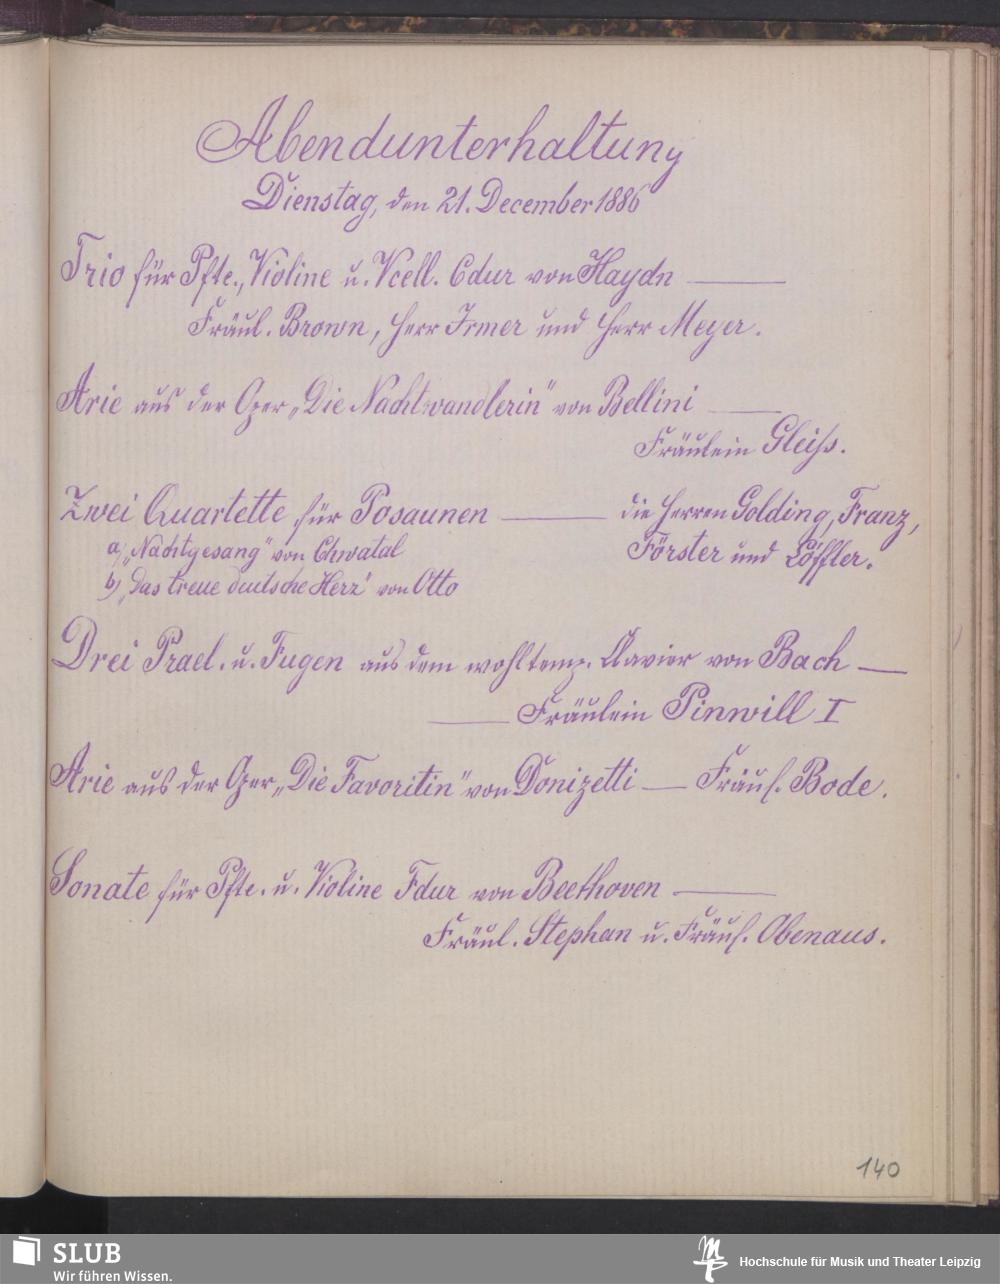 Abendunterhaltung
Dienstag, den 21. December 1886
Trio für Pfte., Violine u. Vcell. Cdur von Haydn ———
Fräul. Brown, Herr Irmer und Herr Meyer.
Arie aus der Oper „Die Nachtwandlerin" von Bellini ———
Fräulein Gleiss.
Zwei Quartette für Posaunen ——— die Herren Golding, Franz,
a) „Nachtgesang" von Chwatal Förster und Löffler.
b) „Das treue deutsche Herz" von Otto
Drei Prael. u. Fugen aus dem wohltemp. Clavier von Bach —
——— Fräulein Pinwill I
Arie aus der Oper „Die Favoritin" von Donizetti — Fräul. Bode.
Sonate für Pfte. u. Violine Fdur von Beethoven ———
Fräul. Stephan u. Fräul. Obenaus.
140
SLUB
Wir führen Wissen.
Hochschule für Musik und Theater Leipzig